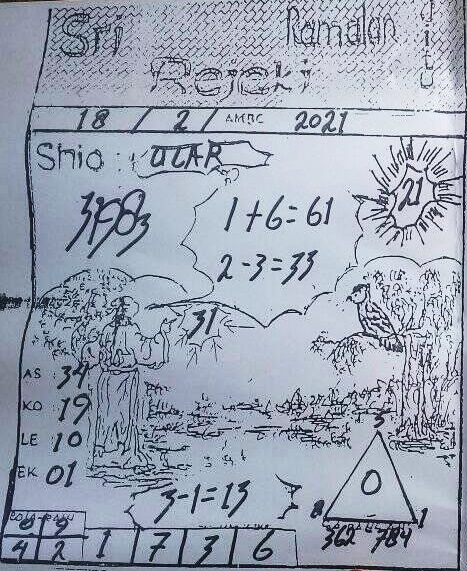 Sri Ramalan Jitu
Rejeki
18 / 2 / AMBC 2021
Shio : ULAR
21
1+6=61
2-3=33
31
AS 34
KO 19
LE 10
EK 01
3-1=13
5
0
8 1
362 784
9 9
4 2 1 7 3 6